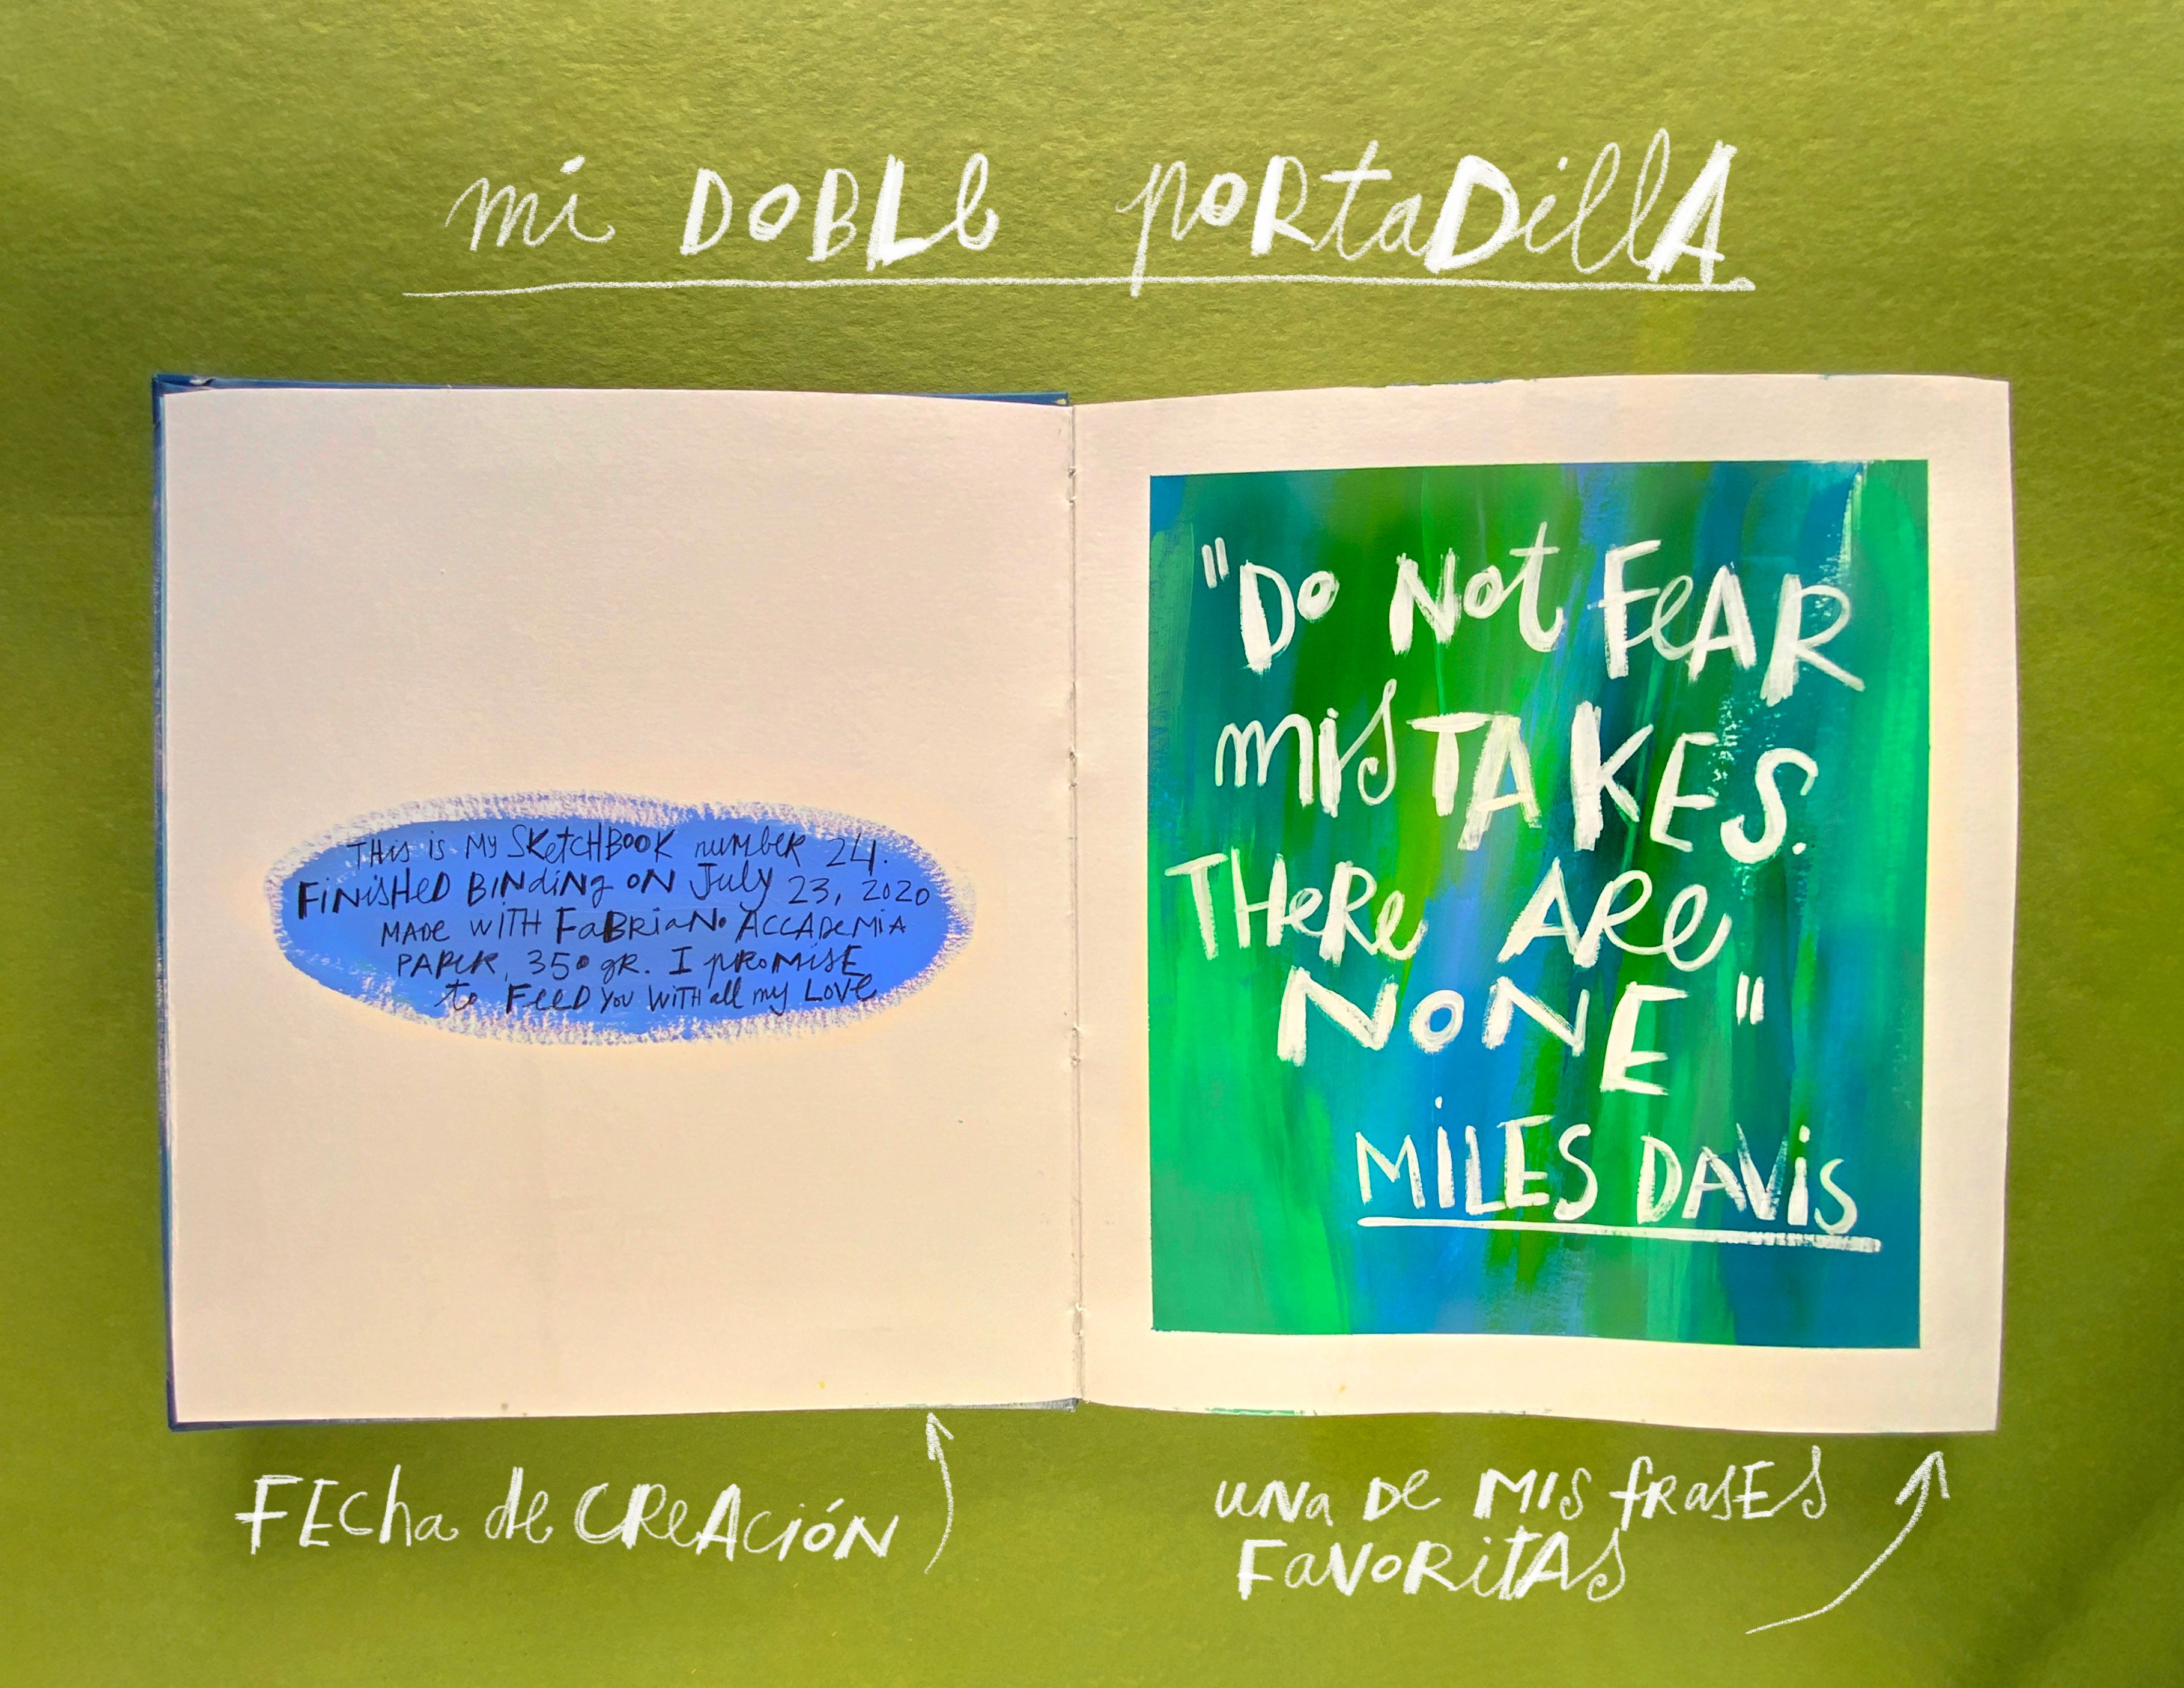 mi DOBLe portaDillA
THis is My SKetcHBOOK number 24.
FiNisHeD BINdiNg ON July 23, 2020
MADe WITH FaBRiaNo ACCADeMiA
PAPeR, 350 gR. I pRoMiSE
to FEED you WITH all my LOVe
"Do Not FeAR
misTAKES.
THeRe ARe
NONE"
MiLES DAViS
FEcha de CReAcióN
uNa De MIS fRasES
FaVoRitAs